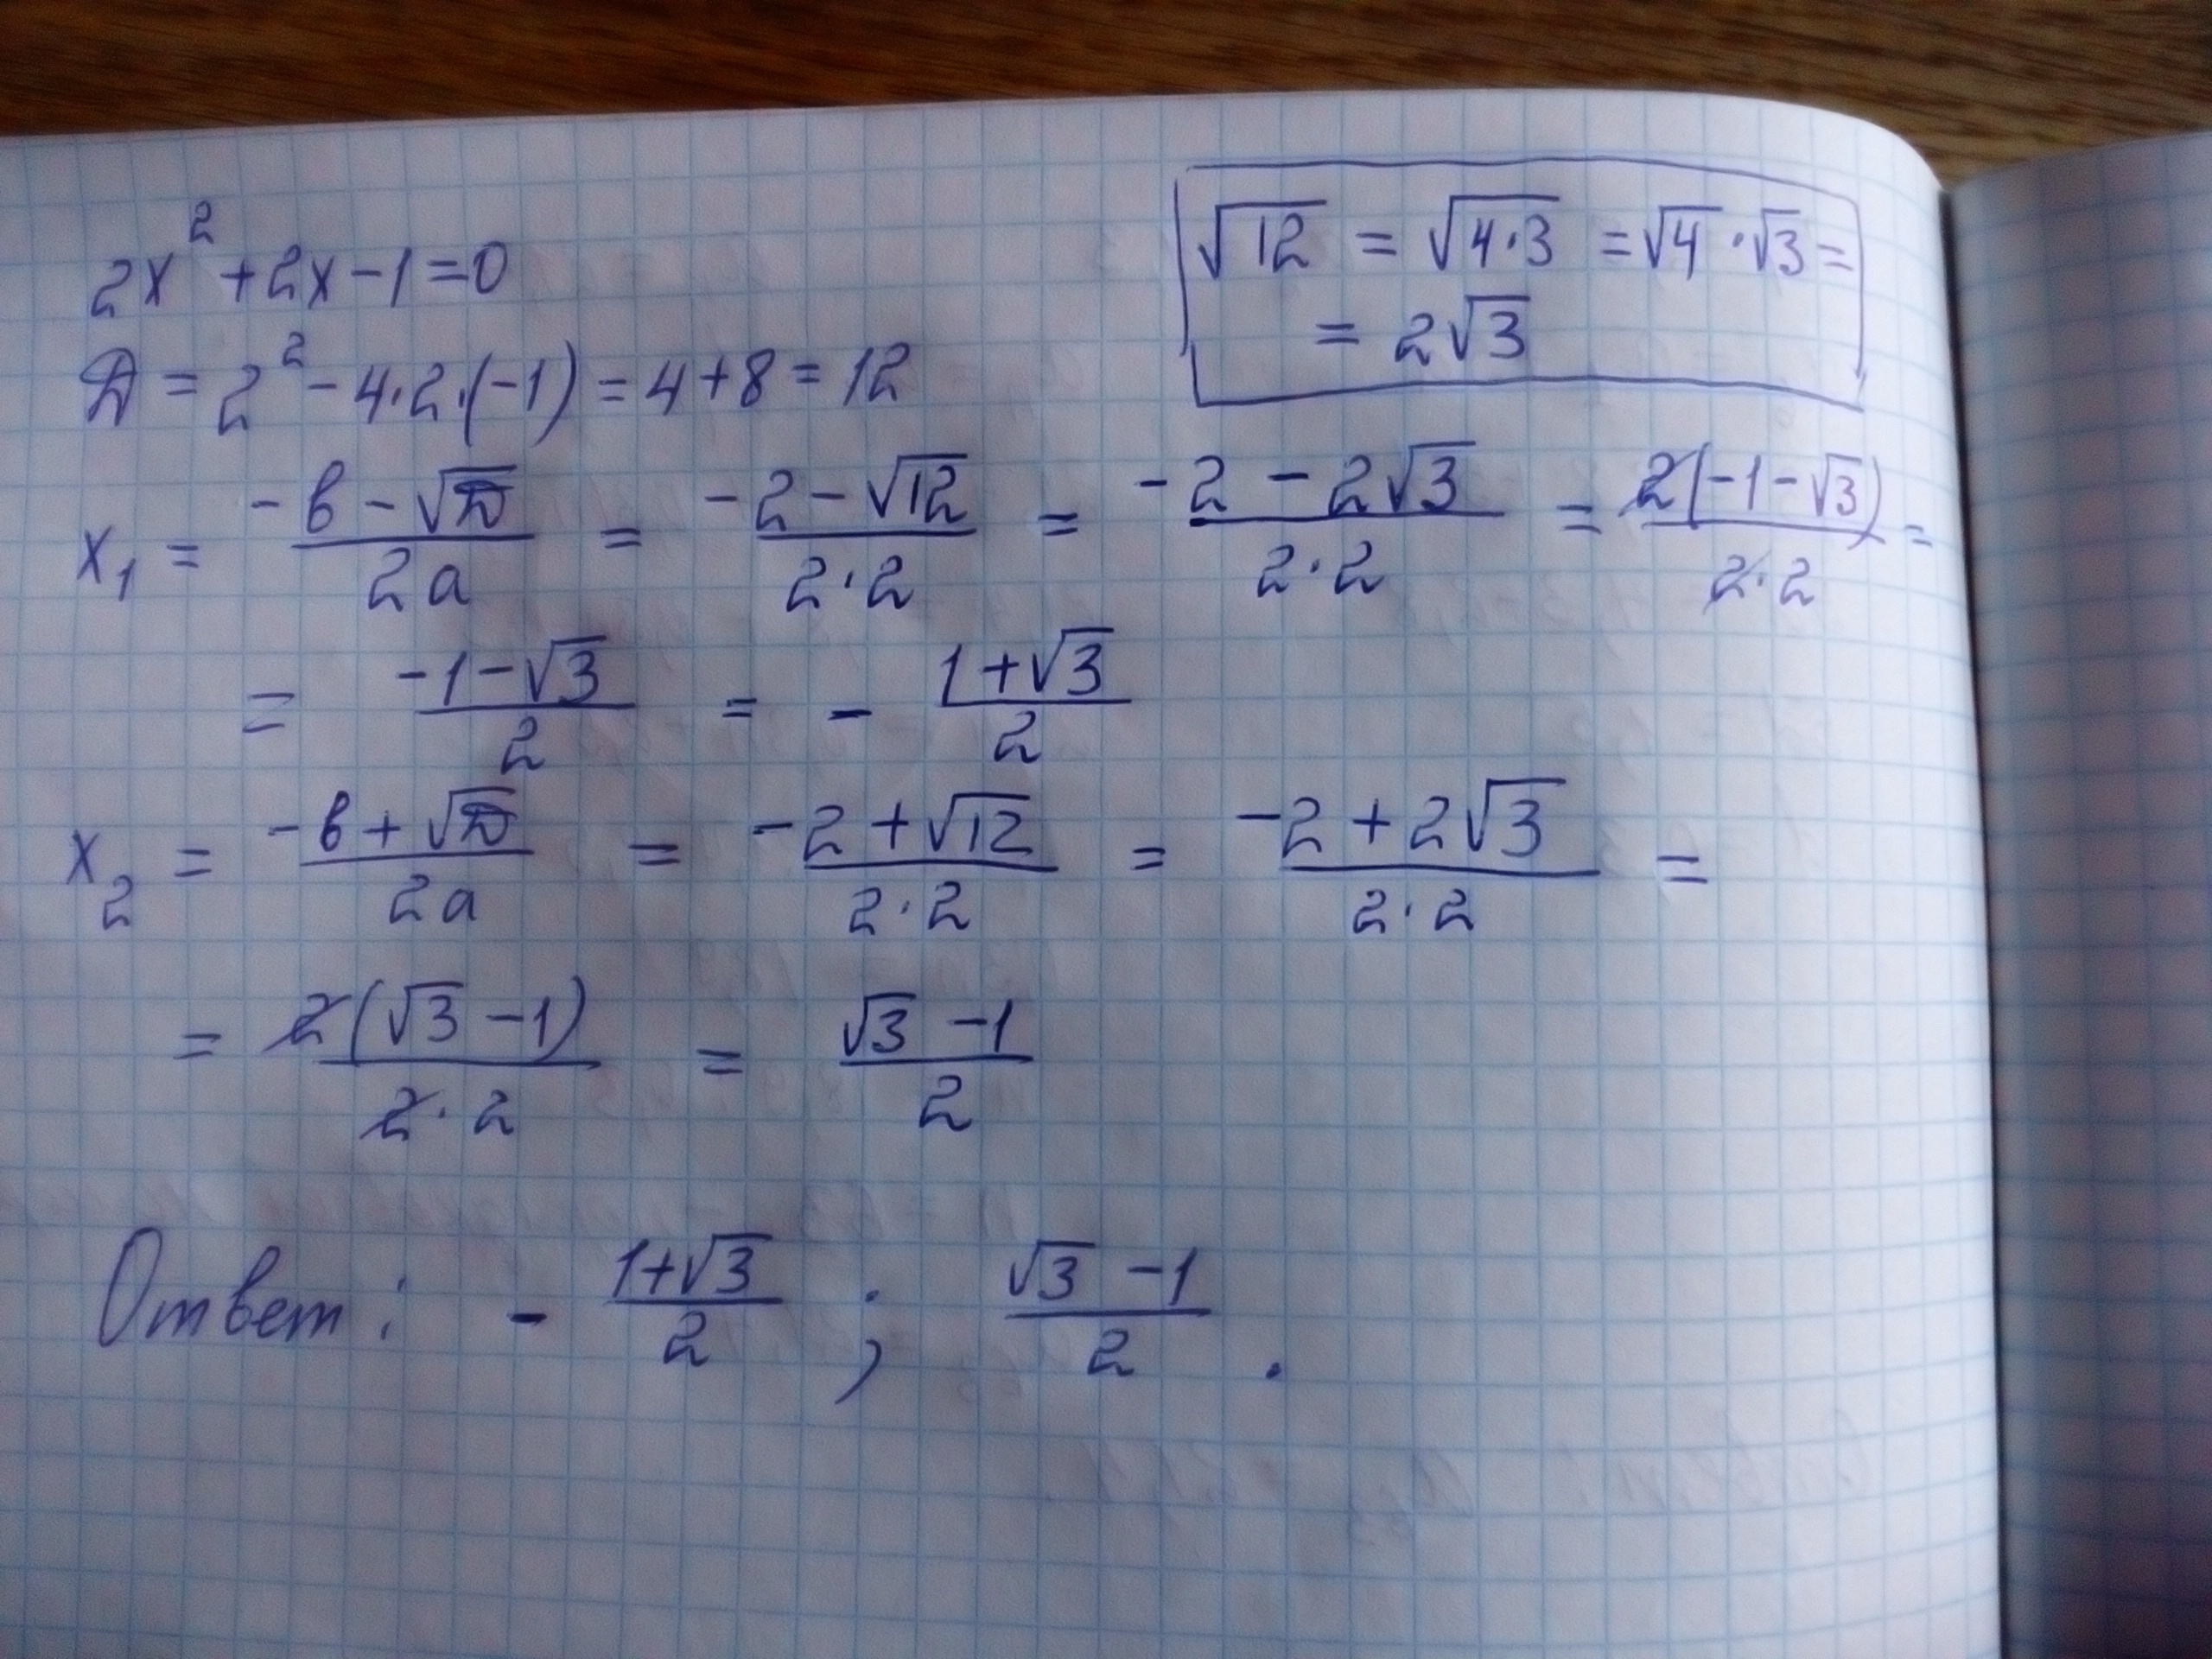 2x² + 2x - 1 = 0
√12 = √4·3 = √4 · √3 =
= 2√3
D = 2² - 4·2·(-1) = 4 + 8 = 12
x₁ = (-b - √D)/(2a) = (-2 - √12)/(2·2) = (-2 - 2√3)/(2·2) = 2(-1 - √3)/(2·2) =
= (-1 - √3)/2 = - (1 + √3)/2
x₂ = (-b + √D)/(2a) = (-2 + √12)/(2·2) = (-2 + 2√3)/(2·2) =
= 2(√3 - 1)/(2·2) = (√3 - 1)/2
Ответ: - (1 + √3)/2 ; (√3 - 1)/2 .